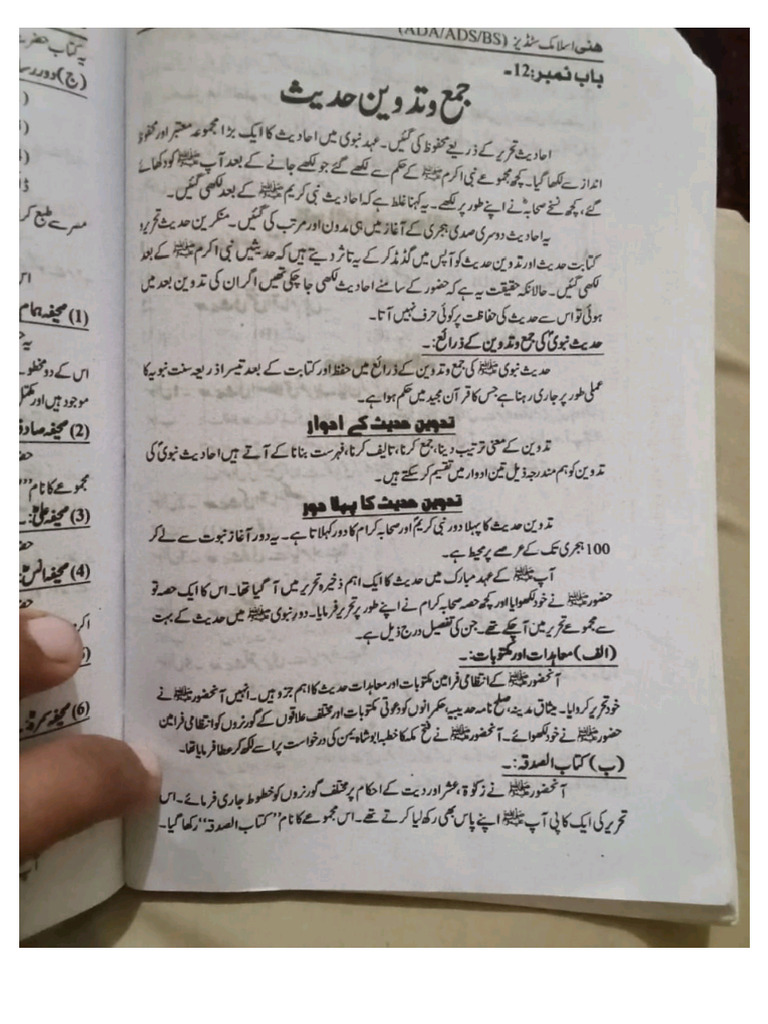 ھنی اسلامک سٹڈیز (ADA/ADS/BS)
باب نمبر:12۔
جمع و تدوین حدیث
احادیث تحریر کے ذریعے محفوظ کی گئیں۔ عہد نبوی میں احادیث کا ایک بڑا مجموعہ معتبر اور محفوظ
انداز سے لکھا گیا۔ کچھ مجموعے نبی اکرم ﷺ کے حکم سے لکھے گئے جو لکھے جانے کے بعد آپ ﷺ کو دکھائے
گئے، کچھ نسخے صحابہؓ نے اپنے طور پر لکھے۔ یہ کہنا غلط ہے کہ احادیث نبی کریم ﷺ کے بعد لکھی گئیں۔
یہ احادیث دوسری صدی ہجری کے آغاز میں ہی مدون اور مرتب کی گئیں۔ منکرین حدیث تحریر و
کتابت حدیث اور تدوین حدیث کو آپس میں گڈمڈ کر کے یہ تاثر دیتے ہیں کہ حدیثیں نبی اکرم ﷺ کے بعد
لکھی گئیں۔ حالانکہ حقیقت یہ ہے کہ حضور کے سامنے احادیث لکھی جا چکی تھیں اگر ان کی تدوین بعد میں
ہوئی تو اس سے حدیث کی حفاظت پر کوئی حرف نہیں آتا۔
حدیث نبویؐ کی جمع و تدوین کے ذرائع:۔
حدیث نبوی ﷺ کی جمع و تدوین کے ذرائع میں حفظ اور کتابت کے بعد تیسرا ذریعہ سنت نبویہ کا
عملی طور پر جاری رہنا ہے جس کا قرآن مجید میں حکم ہوا ہے۔
تدوین حدیث کے ادوار
تدوین کے معنی ترتیب دینا، جمع کرنا، تالیف کرنا، فہرست بنانا کے آتے ہیں احادیث نبویؐ کی
تدوین کو ہم مندرجہ ذیل تین ادوار میں تقسیم کر سکتے ہیں۔
تدوین حدیث کا پہلا دور
تدوین حدیث کا پہلا دور نبی کریمؐ اور صحابہ کرام کا دور کہلاتا ہے۔ یہ دور آغاز نبوت سے لے کر
100 ہجری تک کے عرصے پر محیط ہے۔
آپ ﷺ کے عہد مبارک میں حدیث کا ایک اہم ذخیرہ تحریر میں آ گیا تھا۔ اس کا ایک حصہ تو
حضور ﷺ نے خود لکھوایا اور کچھ حصہ صحابہ کرام نے اپنے طور پر تحریر فرمایا۔ دور نبوی ﷺ میں حدیث کے بہت
سے مجموعے تحریر میں آ چکے تھے۔ جن کی تفصیل درج ذیل ہے۔
(الف) معاہدات اور مکتوبات:۔
آنحضور ﷺ کے انتظامی فرامین مکتوبات اور معاہدات حدیث کا اہم جزو ہیں۔ انہیں آنحضور ﷺ نے
خود تحریر کروایا۔ میثاق مدینہ، صلح نامہ حدیبیہ، حکمرانوں کو دعوتی مکتوبات اور مختلف علاقوں کے گورنروں کو انتظامی فرامین
حضور ﷺ نے خود لکھوائے۔ آنحضور ﷺ نے فتح مکہ کا خطبہ ابو شاہ یمن کی درخواست پر اسے لکھ کر عطا فرمایا تھا۔
(ب) کتاب الصدقہ:۔
آنحضور ﷺ نے زکوٰۃ، عشر اور دیت کے احکام پر مختلف گورنروں کو خطوط جاری فرمائے۔ اس
تحریر کی ایک کاپی آپ ﷺ اپنے پاس بھی رکھ لیا کرتے تھے۔ اس مجموعے کا نام "کتاب الصدقہ" رکھا گیا۔
یہ کتاب حضرت
(ج) دور
مسر سے طبع
(1) صحیفہ ہمام
اس کے دو مخطو
موجود ہیں اور مکمل
(2) صحیفہ صادق
مجموعے کا نام
(3) صحیفہ علیؓ:۔
(4) صحیفہ انس
(6) صحیفہ سمرہ